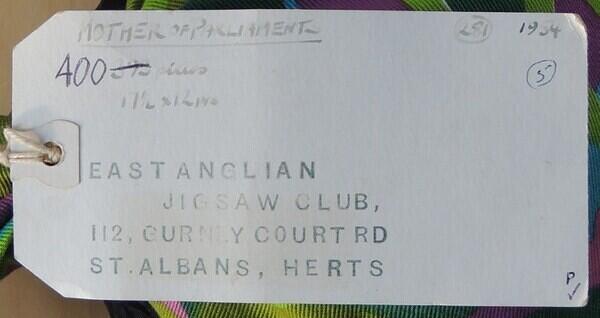 MOTHER OF PARLIAMENTS 251 1954
400 395 pieces 5
17½ x 12 ins
EAST ANGLIAN
JIGSAW CLUB,
112, GURNEY COURT RD
ST. ALBANS, HERTS
P ✓